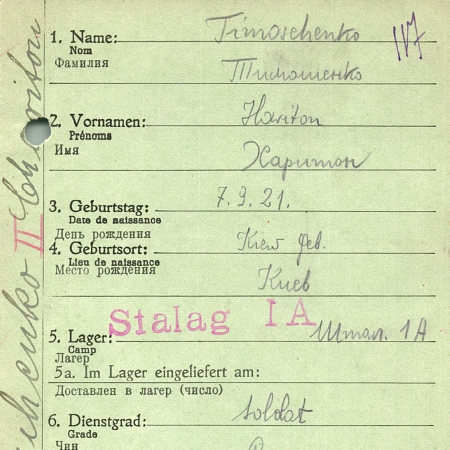 1. Name: Timoschenko
Nom
Фамилия Тимошенко
IV7
2. Vornamen: Hariton
Prénoms
Имя Харитон
3. Geburtstag: 7.9.21.
Date de naissance
День рождения
4. Geburtsort: Kiew Geb.
Lieu de naissance
Место рождения Киев
Stalag IA
5. Lager: Штал. 1А
Camp
Лагерь
5a. Im Lager eingeliefert am:
Доставлен в лагерь (число)
6. Dienstgrad: Soldat
Grade
Чин
II Chariton